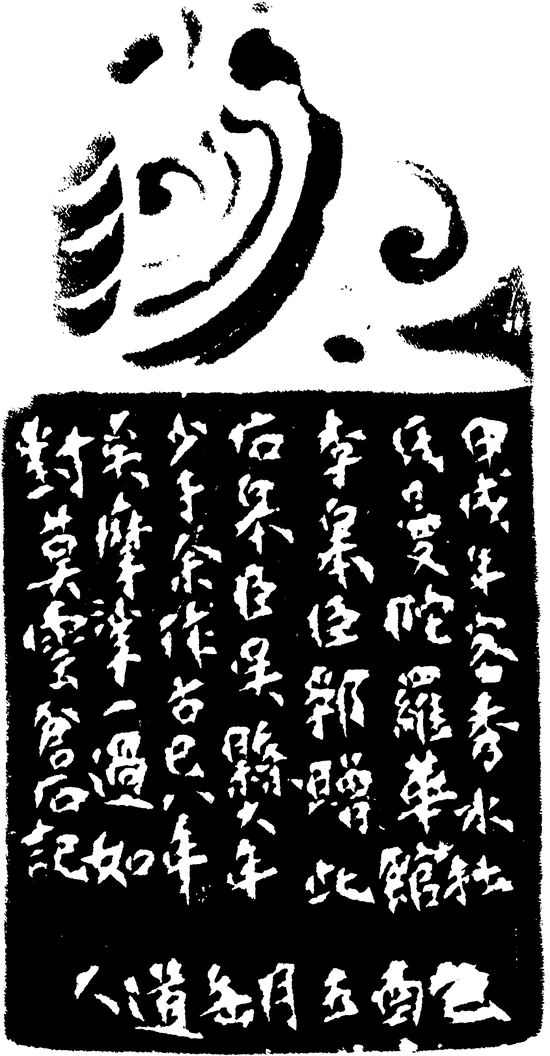 甲戌年客秀水杜
氏曼陀羅華館
李杲臣鄰贈此
石杲臣吳縣人年
少于余作古已八年
矣摩挲一過如
對莫雲倉石記
己酉五月缶道人